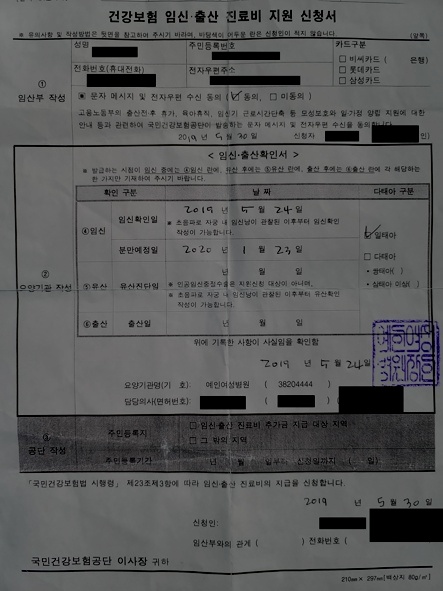 건강보험 임신·출산 진료비 지원 신청서
※ 유의사항 및 작성방법은 뒷면을 참고하여 주시기 바라며, 바탕색이 어두운 란은 신청인이 적지 않습니다. (앞쪽)
① 임산부 작성
성명
주민등록번호
카드구분
□ 비씨카드 ( 은행)
□ 롯데카드
□ 삼성카드
전화번호(휴대전화)
전자우편주소
▣ 문자 메시지 및 전자우편 수신 동의 ( ☑ 동의, □ 미동의 )
고용노동부의 출산전후 휴가, 육아휴직, 임신기 근로시간단축 등 모성보호와 일가정 양립 지원에 대한
안내 등과 관련하여 국민건강보험공단이 발송하는 문자 메시지 및 전자우편 수신을 동의합니다.
2019 년 5 월 30 일 신청인
② 요양기관 작성
< 임신·출산확인서 >
※ 발급하는 시점이 임신 중에는 ④임신 란에, 유산 후에는 ⑤유산 란에, 출산 후에는 ⑥출산 란에 각 해당하는
한 가지만 기재하여 주시기 바랍니다.
확인 구분 날 짜 다태아 구분
④임신
임신확인일
2019 년 5 월 24 일
※ 초음파로 자궁 내 임신낭이 관찰된 이후부터 임신확인
작성이 가능합니다.
분만예정일
2020 년 1 월 23 일
☑ 일태아
□ 다태아
· 쌍태아( )
· 삼태아 이상( )
⑤유산
유산진단일
년 월 일
※ 인공임신중절수술은 지원신청 대상이 아니며,
※ 초음파로 자궁 내 임신낭이 관찰된 이후부터 유산확인
작성이 가능합니다.
⑥출산 출산일 년 월 일
위에 기록한 사항이 사실임을 확인함
2019 년 5 월 24 일
요양기관명(기 호): 예인여성병원 ( 38204444 )
담당의사(면허번호): ( )
③ 공단 작성
주민등록지
□ 임신·출산 진료비 추가금 지급 대상 지역
□ 그 밖의 지역
주민등록기간 년 월 일부터 신청일까지 ( 일)
「국민건강보험법 시행령」 제23조제3항에 따라 임신·출산 진료비의 지급을 신청합니다.
2019 년 5 월 30 일
신청인:
임산부와의 관계 ( ) 전화번호 (
국민건강보험공단 이사장 귀하
210mm× 297mm[백상지 80g/㎡]